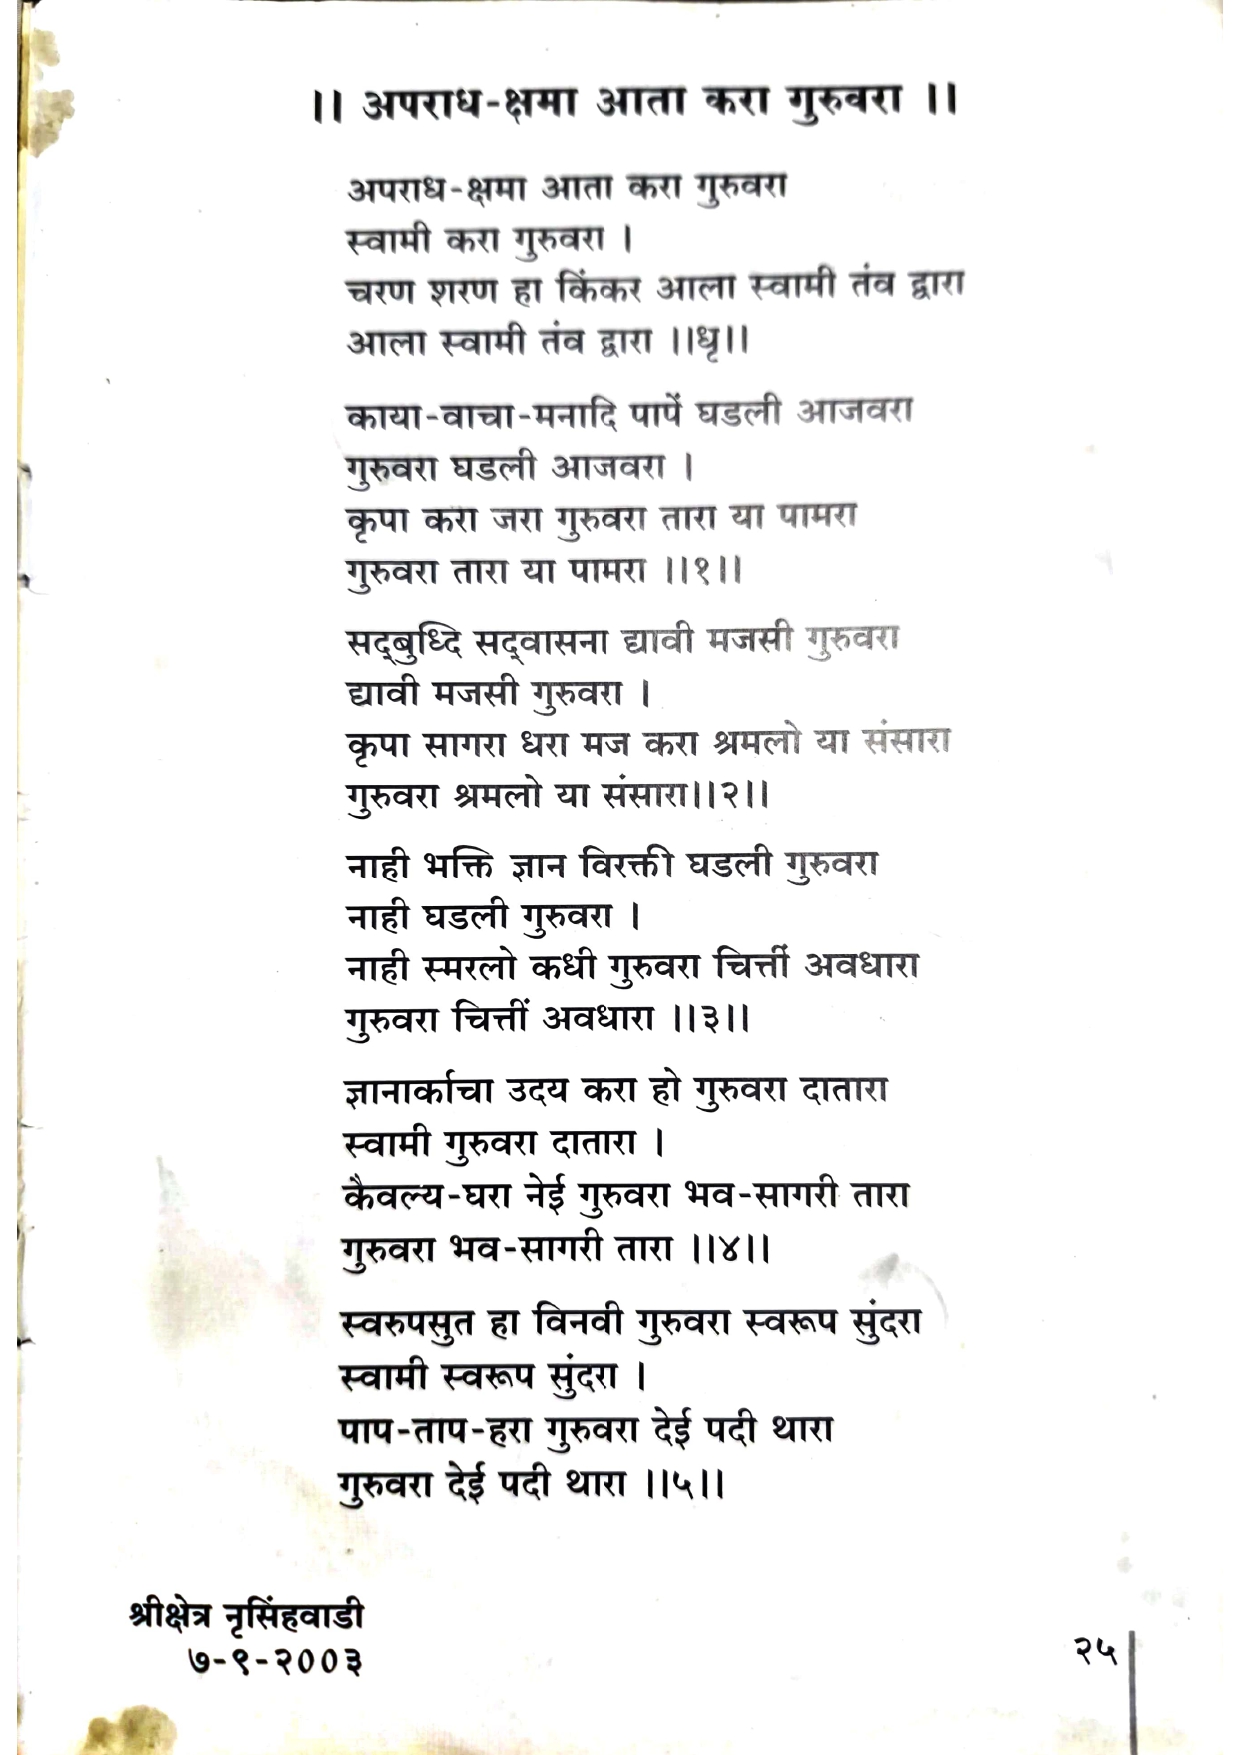 ।। अपराध-क्षमा आता करा गुरुवरा ।।
अपराध-क्षमा आता करा गुरुवरा
स्वामी करा गुरुवरा ।
चरण शरण हा किंकर आला स्वामी तंव द्वारा
आला स्वामी तंव द्वारा ।।धृ।।
काया-वाचा-मनादि पापें घडली आजवरा
गुरुवरा घडली आजवरा ।
कृपा करा जरा गुरुवरा तारा या पामरा
गुरुवरा तारा या पामरा ।।१।।
सद्‌बुध्दि सद्‌वासना द्यावी मजसी गुरुवरा
द्यावी मजसी गुरुवरा ।
कृपा सागरा धरा मज करा श्रमलो या संसारा
गुरुवरा श्रमलो या संसारा।।२।।
नाही भक्ति ज्ञान विरक्ती घडली गुरुवरा
नाही घडली गुरुवरा ।
नाही स्मरलो कधी गुरुवरा चित्तीं अवधारा
गुरुवरा चित्तीं अवधारा ।।३।।
ज्ञानार्काचा उदय करा हो गुरुवरा दातारा
स्वामी गुरुवरा दातारा ।
कैवल्य-घरा नेई गुरुवरा भव-सागरी तारा
गुरुवरा भव-सागरी तारा ।।४।।
स्वरुपसुत हा विनवी गुरुवरा स्वरूप सुंदरा
स्वामी स्वरूप सुंदरा ।
पाप-ताप-हरा गुरुवरा देई पदी थारा
गुरुवरा देई पदी थारा ।।५।।
श्रीक्षेत्र नृसिंहवाडी
७-९-२००३
२५